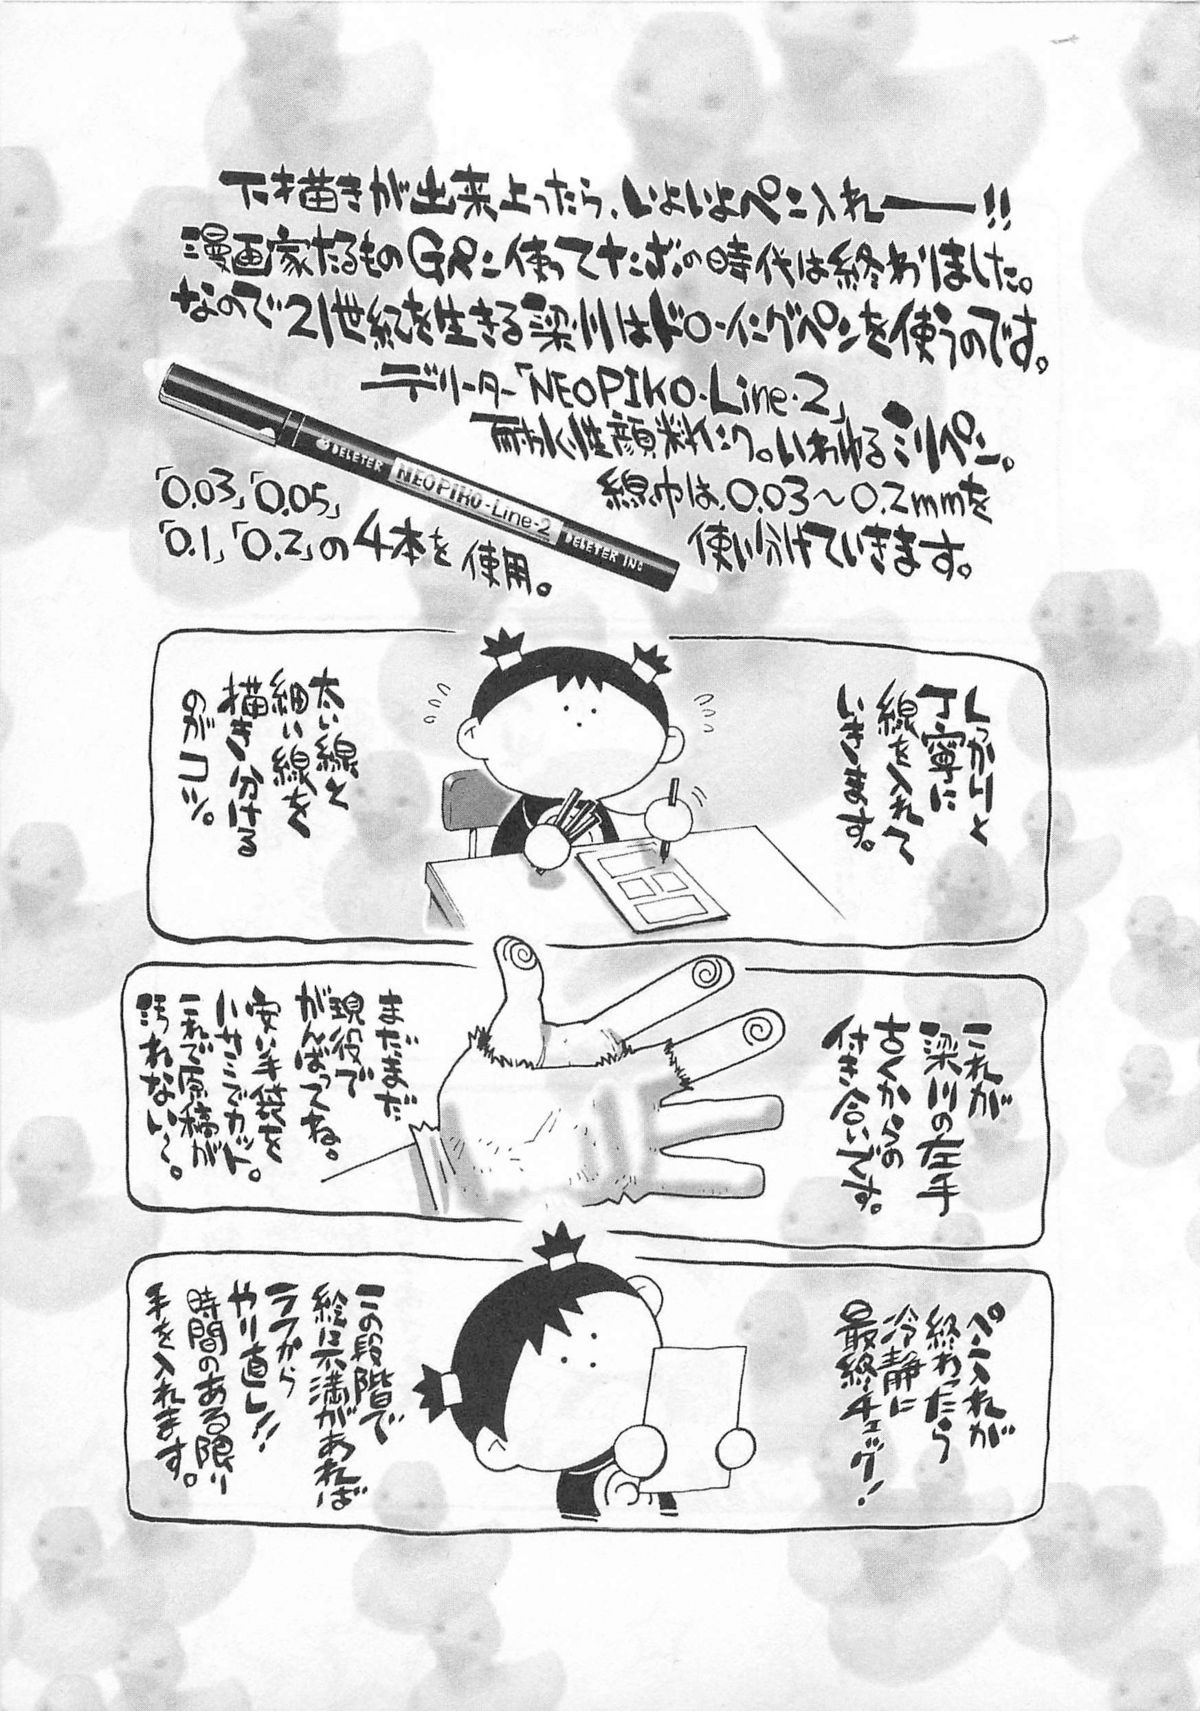 下描きが出来上ったら、いよいよペン入れー!!
漫画家たるものGペン使ってナンボの時代は終わりました。
なので21世紀を生きる梁川はドローイングペンを使うのです。
デリーター「NEOPIKO-Line-2」
耐水性顔料インク。いわゆるミリペン。
線巾は、0.03〜0.2mmを
使い分けていきます。
「0.03」「0.05」
「0.1」「0.2」の4本を使用。
DELETER
NEOPIKO-Line-2
DELETER INC
しっかりと
丁寧に
線を入れて
いきます。
太い線と
細い線を
描き分ける
のがコツ。
これが
梁川の左手
古くからの
付き合いです。
まだまだ
現役で
がんばってね。
安い手袋を
ハサミでカット。
これで原稿が
汚れない〜。
ペン入れが
終わったら
冷静に
最終チェック!
この段階で
絵に不満があれば
ラフから
やり直し!!
時間のある限り
手を入れます。